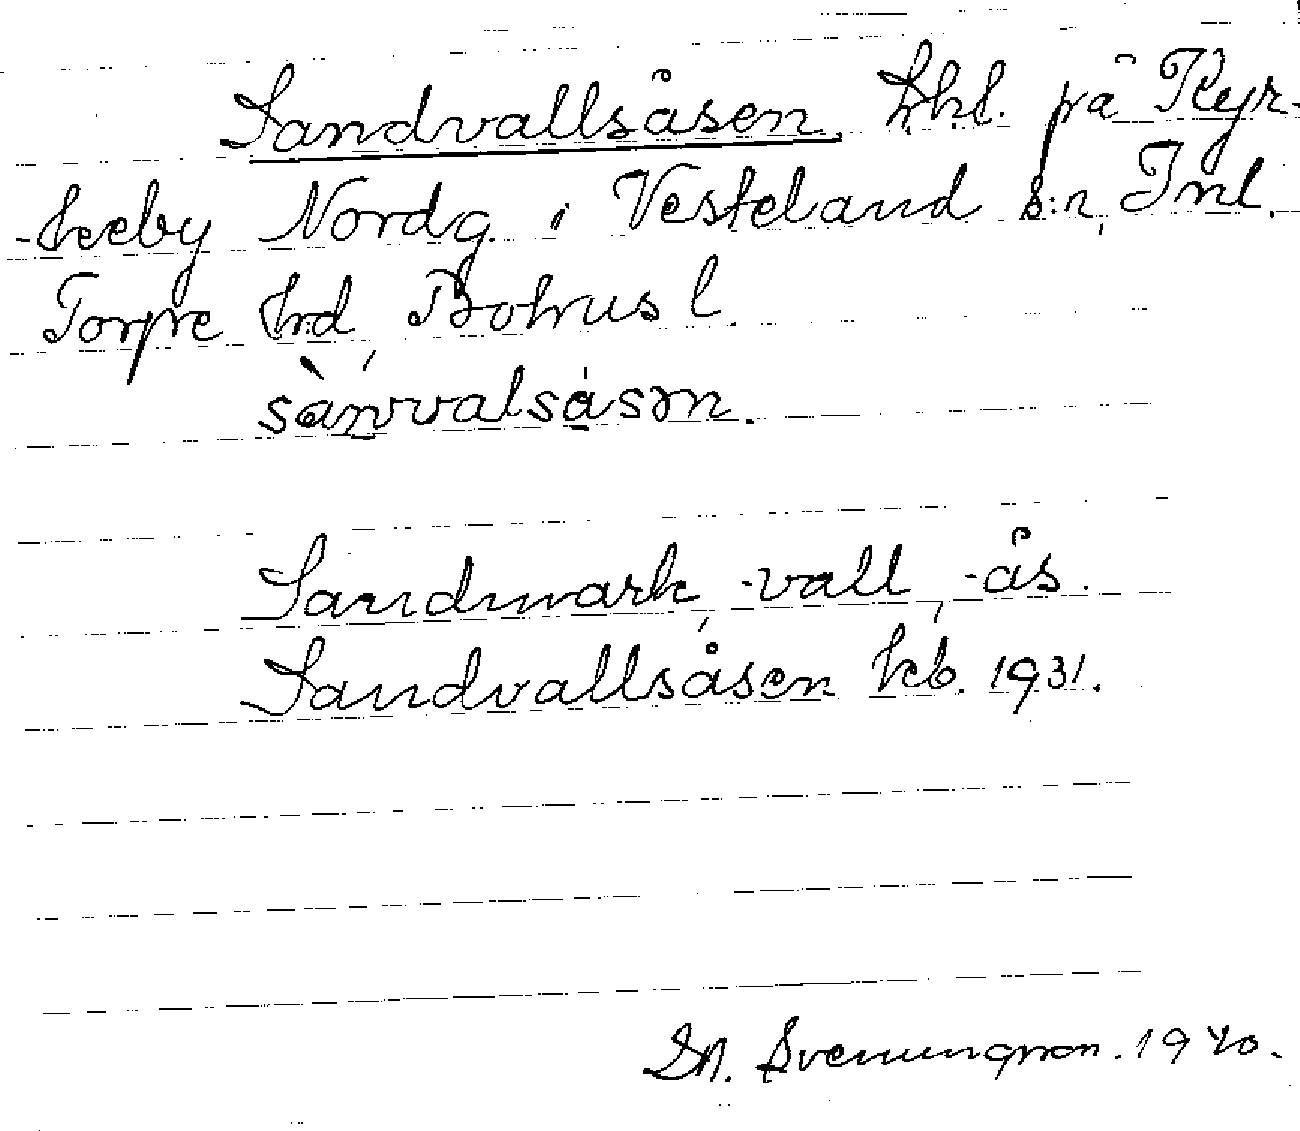 Sandvallsåsen, lhl. på Kyr-
-keby Nordg. i Vesteland s:n, Inl.
Torpe hd, Bohus l.
sànvvalsåsən.
Sandmark, -vall, -ås.
Sandvallsåsen kb. 1931.
Svenungson. 1940.